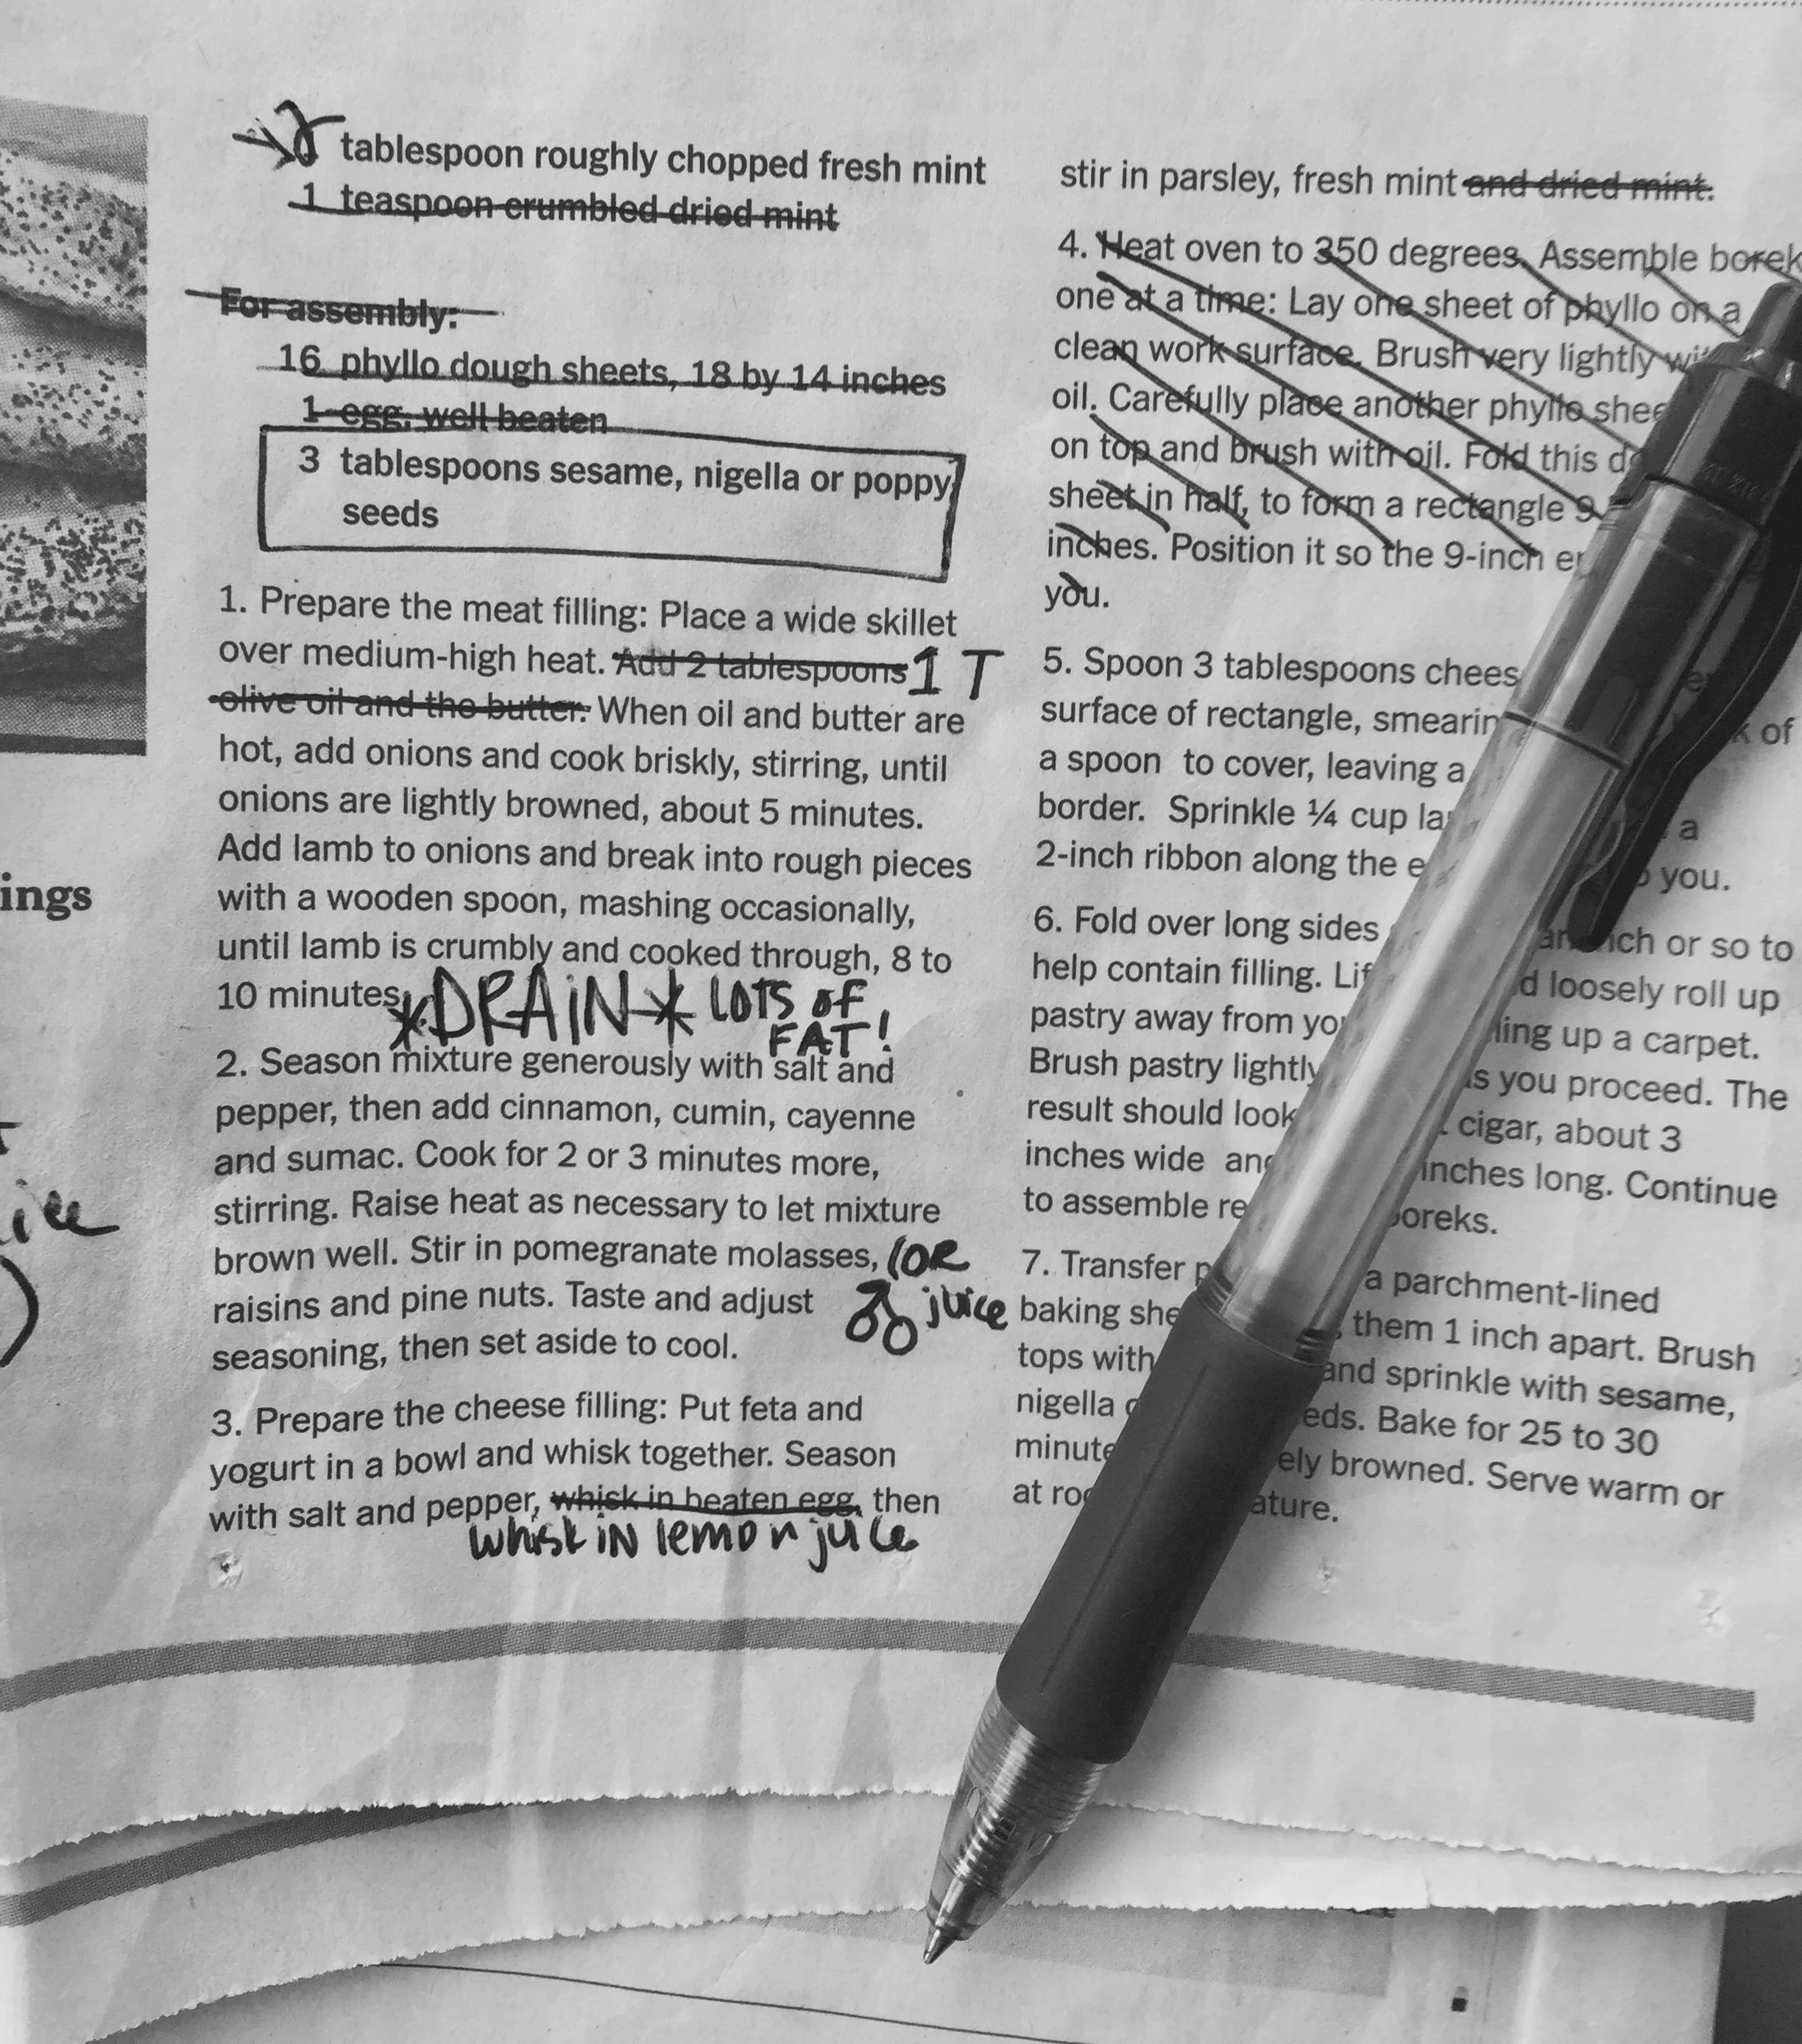 2 tablespoon roughly chopped fresh mint
1 teaspoon crumbled dried mint
For assembly:
16 phyllo dough sheets, 18 by 14 inches
1 egg, well beaten
3 tablespoons sesame, nigella or poppy
seeds
1. Prepare the meat filling: Place a wide skillet
over medium-high heat. Add 2 tablespoons 1 T
olive oil and the butter. When oil and butter are
hot, add onions and cook briskly, stirring, until
onions are lightly browned, about 5 minutes.
Add lamb to onions and break into rough pieces
with a wooden spoon, mashing occasionally,
until lamb is crumbly and cooked through, 8 to
10 minutes. *DRAIN* LOTS OF
FAT!
2. Season mixture generously with salt and
pepper, then add cinnamon, cumin, cayenne
and sumac. Cook for 2 or 3 minutes more,
stirring. Raise heat as necessary to let mixture
brown well. Stir in pomegranate molasses, (OR
raisins and pine nuts. Taste and adjust juice
seasoning, then set aside to cool.
3. Prepare the cheese filling: Put feta and
yogurt in a bowl and whisk together. Season
with salt and pepper, whisk in beaten egg, then
whisk IN lemon juice
stir in parsley, fresh mint and dried mint.
4. Heat oven to 350 degrees. Assemble borek
one at a time: Lay one sheet of phyllo on a
clean work surface. Brush very lightly
oil. Carefully place another phyllo
on top and brush with oil. Fold this
sheet in half, to form a rectangle 9
inches. Position it so the 9-inch
you.
5. Spoon 3 tablespoons
surface of rectangle, of
a spoon to cover, leaving a
border. Sprinkle ¼ cup a
2-inch ribbon along the you.
6. Fold over long sides or so to
help contain filling. loosely roll up
pastry away from up a carpet.
Brush pastry lightly as you proceed. The
result should look cigar, about 3
inches wide inches long. Continue
to assemble boreks.
7. Transfer a parchment-lined
baking them 1 inch apart. Brush
tops with and sprinkle with sesame,
nigella Bake for 25 to 30
browned. Serve warm or
at
ings